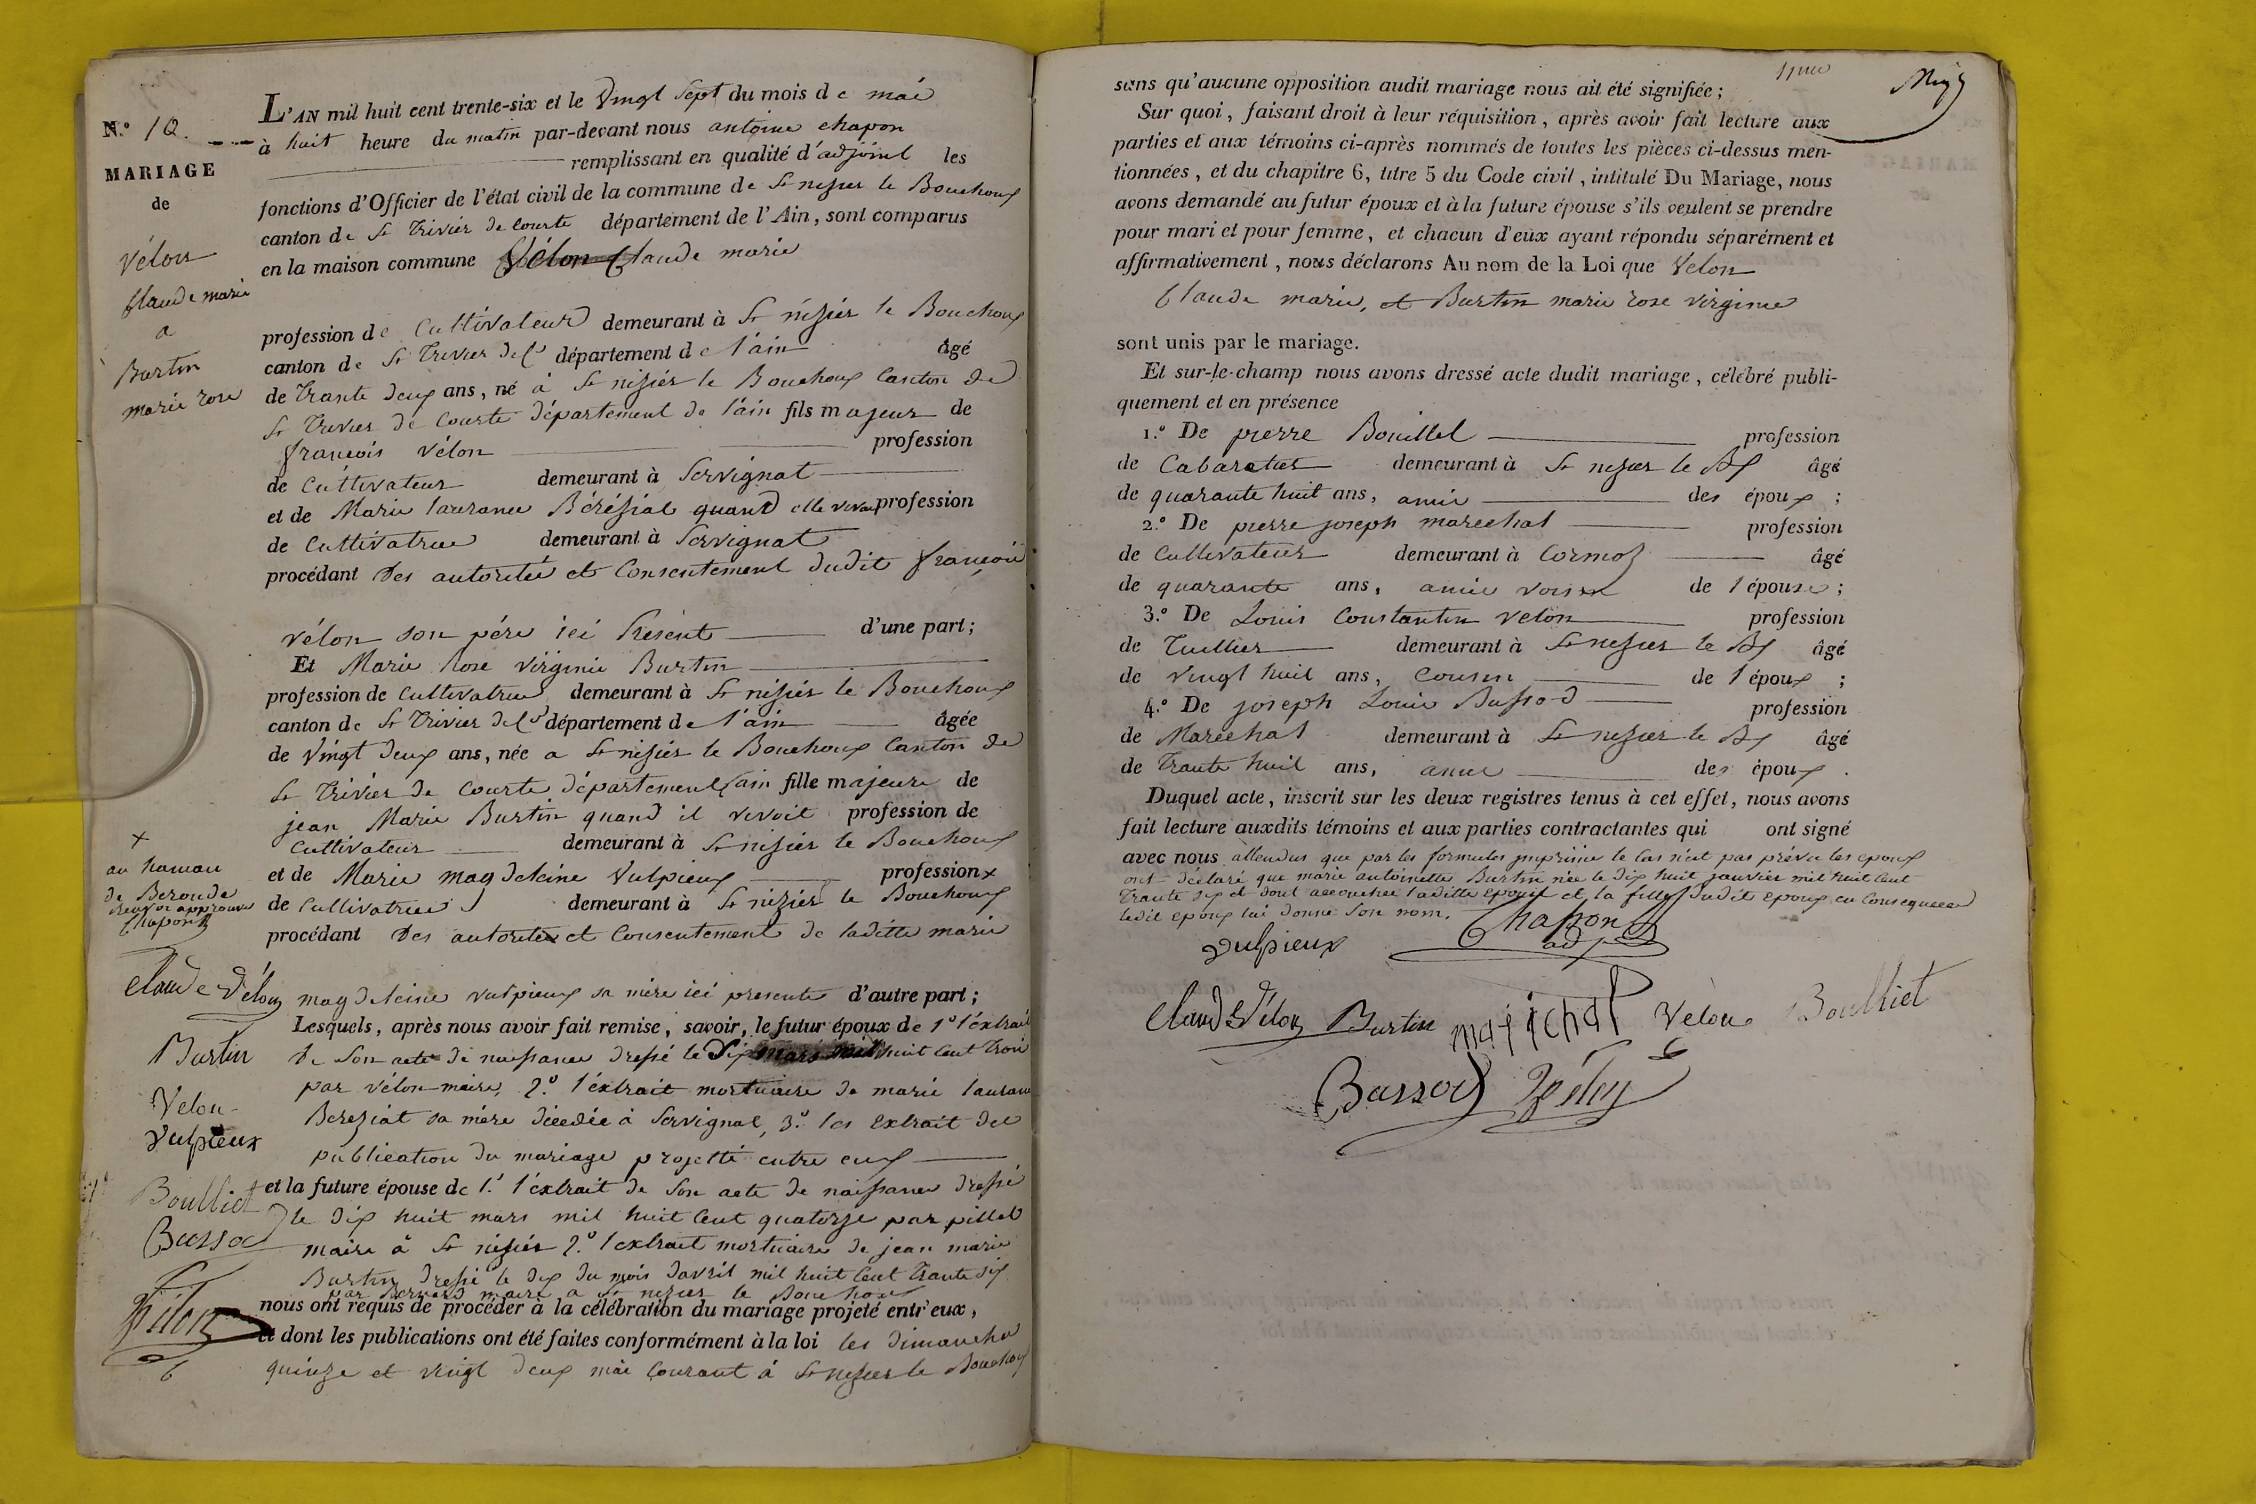 N.o 10.
MARIAGE
de
Vélon
Claude marie
a
Burtin
marie rose
L'AN mil huit cent trente-six et le vingt sept du mois de mai
à huit heure du matin par-devant nous antoine chapon
remplissant en qualité d'adjoint les
fonctions d'Officier de l'état civil de la commune de St nizier le Bouchoux
canton de St Trivier de Courte département de l'Ain, sont comparus
en la maison commune Vélon Claude marie
profession de Cultivateur demeurant à St nizier le Bouchoux
canton de St Trivier de Cs département de l'ain âgé
de trante deux ans, né à St nizier le Bouchoux Canton de
St Trivier de Courte département de l'ain fils majeur de
françois vélon profession
de Cultivateur demeurant à Servignat
et de Marie laurance Béréziat quand elle vivait profession
de Cultivatrice demeurant à Servignat
procédant des autorités et Consentement dudit françois
vélon son père ici présent d'une part;
Et Marie Rose virginie Burtin
profession de Cultivatrice demeurant à St nizier le Bouchoux
canton de St Trivier de Cs département de l'ain âgée
de vingt deux ans, née a St nizier le Bouchoux Canton de
St Trivier de Courte département l'ain fille majeure de
jean Marie Burtin quand il vivoit profession de
Cultivateur demeurant à St nizier le Bouchoux
et de Marie magdeleine Vulpieux profession x
de Cultivatrice demeurant à St nizier le Bouchoux
procédant des autorités et Consentement de laditte marie
x
au hamau
de Beronde
renvoi approuvé
Chapon
magdeleine vulpieux sa mère ici presente d'autre part;
Lesquels, après nous avoir fait remise, savoir, le futur époux de 1o l'éxtrait
de son acte de naissance dressé le dix mars mil huit Cent trois
par vélon maire, 2o l'éxtrait mortuaire de marie laurance
Bereziat sa mère décédée à Servignat, 3o les Extrait de
publication du mariage projetté entre eux
et la future épouse de 1o l'éxtrait de son acte de naissance dressé
le dix huit mars mil huit Cent quatorze par pillet
maire à St nizier 2o l'extrait mortuaire de jean marie
Burtin dressé le dix du mois davril mil huit Cent trante six
par Bernard maire a St nizier le Bouchoux
nous ont requis de procéder à la célébration du mariage projeté entr'eux,
et dont les publications ont été faites conformément à la loi les dimanche
quinze et vingt deux mai Courant à St nizier le Bouchoux
Claude Vélon
Burtin
Velon
Vulpieux
Boulliet
Bussod
Vélon
sans qu'aucune opposition audit mariage nous ait été signifiée;
Sur quoi, faisant droit à leur réquisition, après avoir fait lecture aux
parties et aux témoins ci-après nommés de toutes les pièces ci-dessus men-
tionnées, et du chapitre 6, titre 5 du Code civil, intitulé Du Mariage, nous
avons demandé au futur époux et à la future épouse s'ils veulent se prendre
pour mari et pour femme, et chacun d'eux ayant répondu séparément et
affirmativement, nous déclarons Au nom de la Loi que Velon
Claude marie, et Burtin marie rose virginie
sont unis par le mariage.
Et sur-le-champ nous avons dressé acte dudit mariage, célébré publi-
quement et en présence
1.o De pierre Bouillet profession
de Cabaretier demeurant à St nizier le Bx âgé
de quarante huit ans, amie des époux ;
2.o De pierre joseph marechal profession
de Cultivateur demeurant à Cormoz âgé
de quarante ans, amie voisin de l'épouse ;
3.o De Louis Constantin velon profession
de Tuillier demeurant à St nizier le Bx âgé
de vingt huit ans, Cousin de l'époux ;
4.o De joseph Louis Bussod profession
de Maréchal demeurant à St nizier le Bx âgé
de trante huit ans, amie des époux .
Duquel acte, inscrit sur les deux registres tenus à cet effet, nous avons
fait lecture auxdits témoins et aux parties contractantes qui ont signé
avec nous attendus que par les formules imprimée le Cas n'est pas prévu les epoux
ont déclaré que marie antoinette Burtin née le dix huit janvier mil huit Cent
trante six et dont accouchée laditte épouse est la fille dudit epoux en Consequence
ledit epoux lui donne son nom.
Vulpieux
Chapon
adj
Claude Vélon Burtin marichal Velon Boulliet
Bussod Vélon